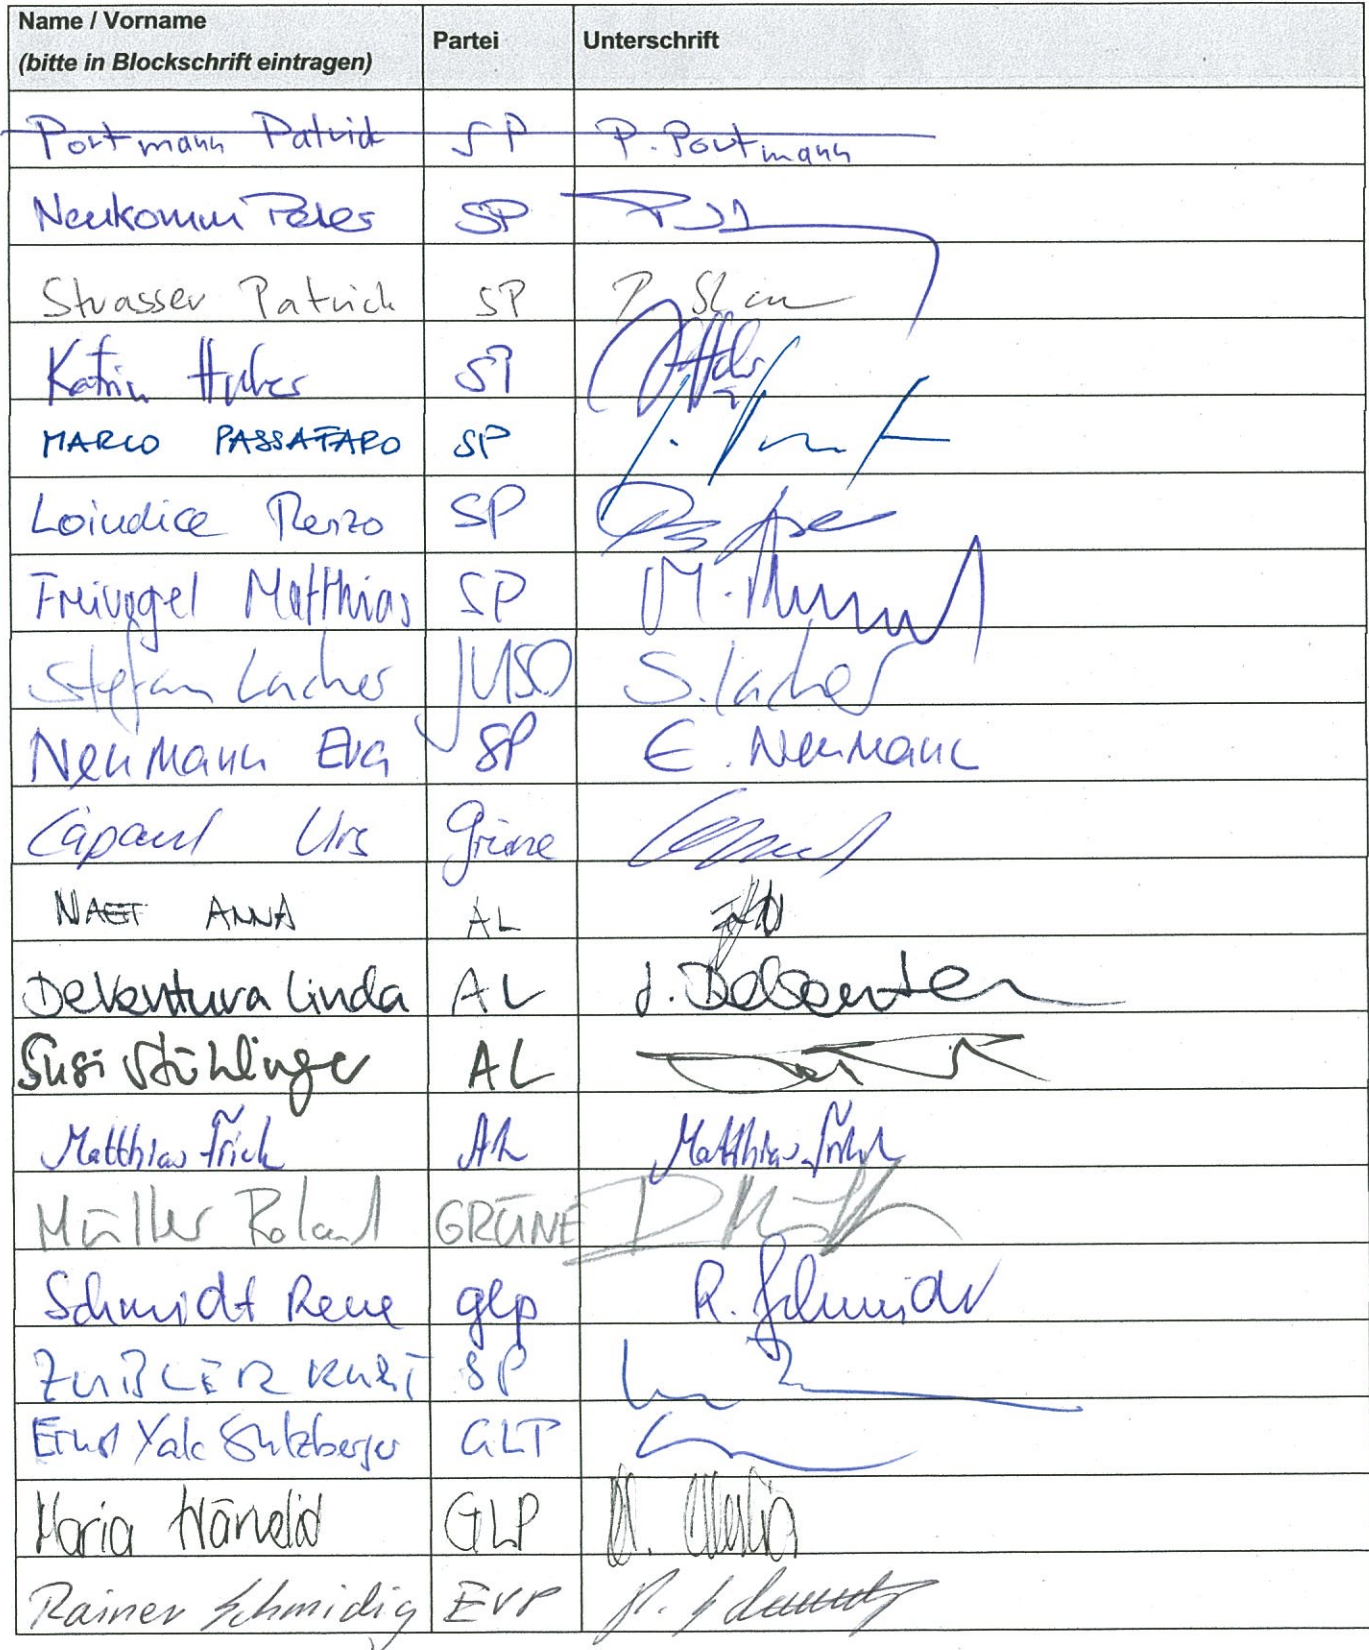 Name / Vorname Partei Unterschrift
(bitte in Blockschrift eintragen)
Portmann Patrick SP P. Portmann
Neukomm Peter SP
Strasser Patrick SP
Katrin Huber SP
MARCO PASSAFARO SP
Loiudice Renzo SP
Freivogel Matthias SP M.
Stefan Lacher JUSO S. Lacher
Neumann Eva SP E. Neumann
Capaul Urs Grüne
NAEF ANNA AL
De Ventura Linda AL
Susi Stühlinger AL
Matthias Frick AL Matthias Frick
Müller Roland GRÜNE
Schmidt Rene glp R. Schmidt
ZUBLER KURT SP
Ernst Yak Sulzberger GLP
Maria Härvelid GLP
Rainer Schmidig EVP R. Schmidig